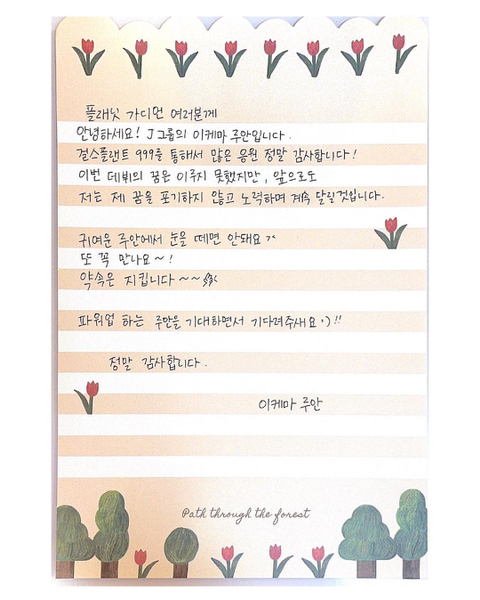 플래닛 가디언 여러분께
안녕하세요! J그룹의 이케마 루안입니다.
걸스플래닛 999를 통해서 많은 응원 정말 감사합니다!
이번 데뷔의 꿈은 이루지 못했지만, 앞으로도
저는 제 꿈을 포기하지 않고 노력하며 계속 달릴것입니다.
귀여운 루안에서 눈을 떼면 안돼요 ㅋ
또 꼭 만나요~!
약속은 지킵니다~~
파워업 하는 루안을 기대하면서 기다려주세요 :) !!
정말 감사합니다.
이케마 루안
Path through the forest